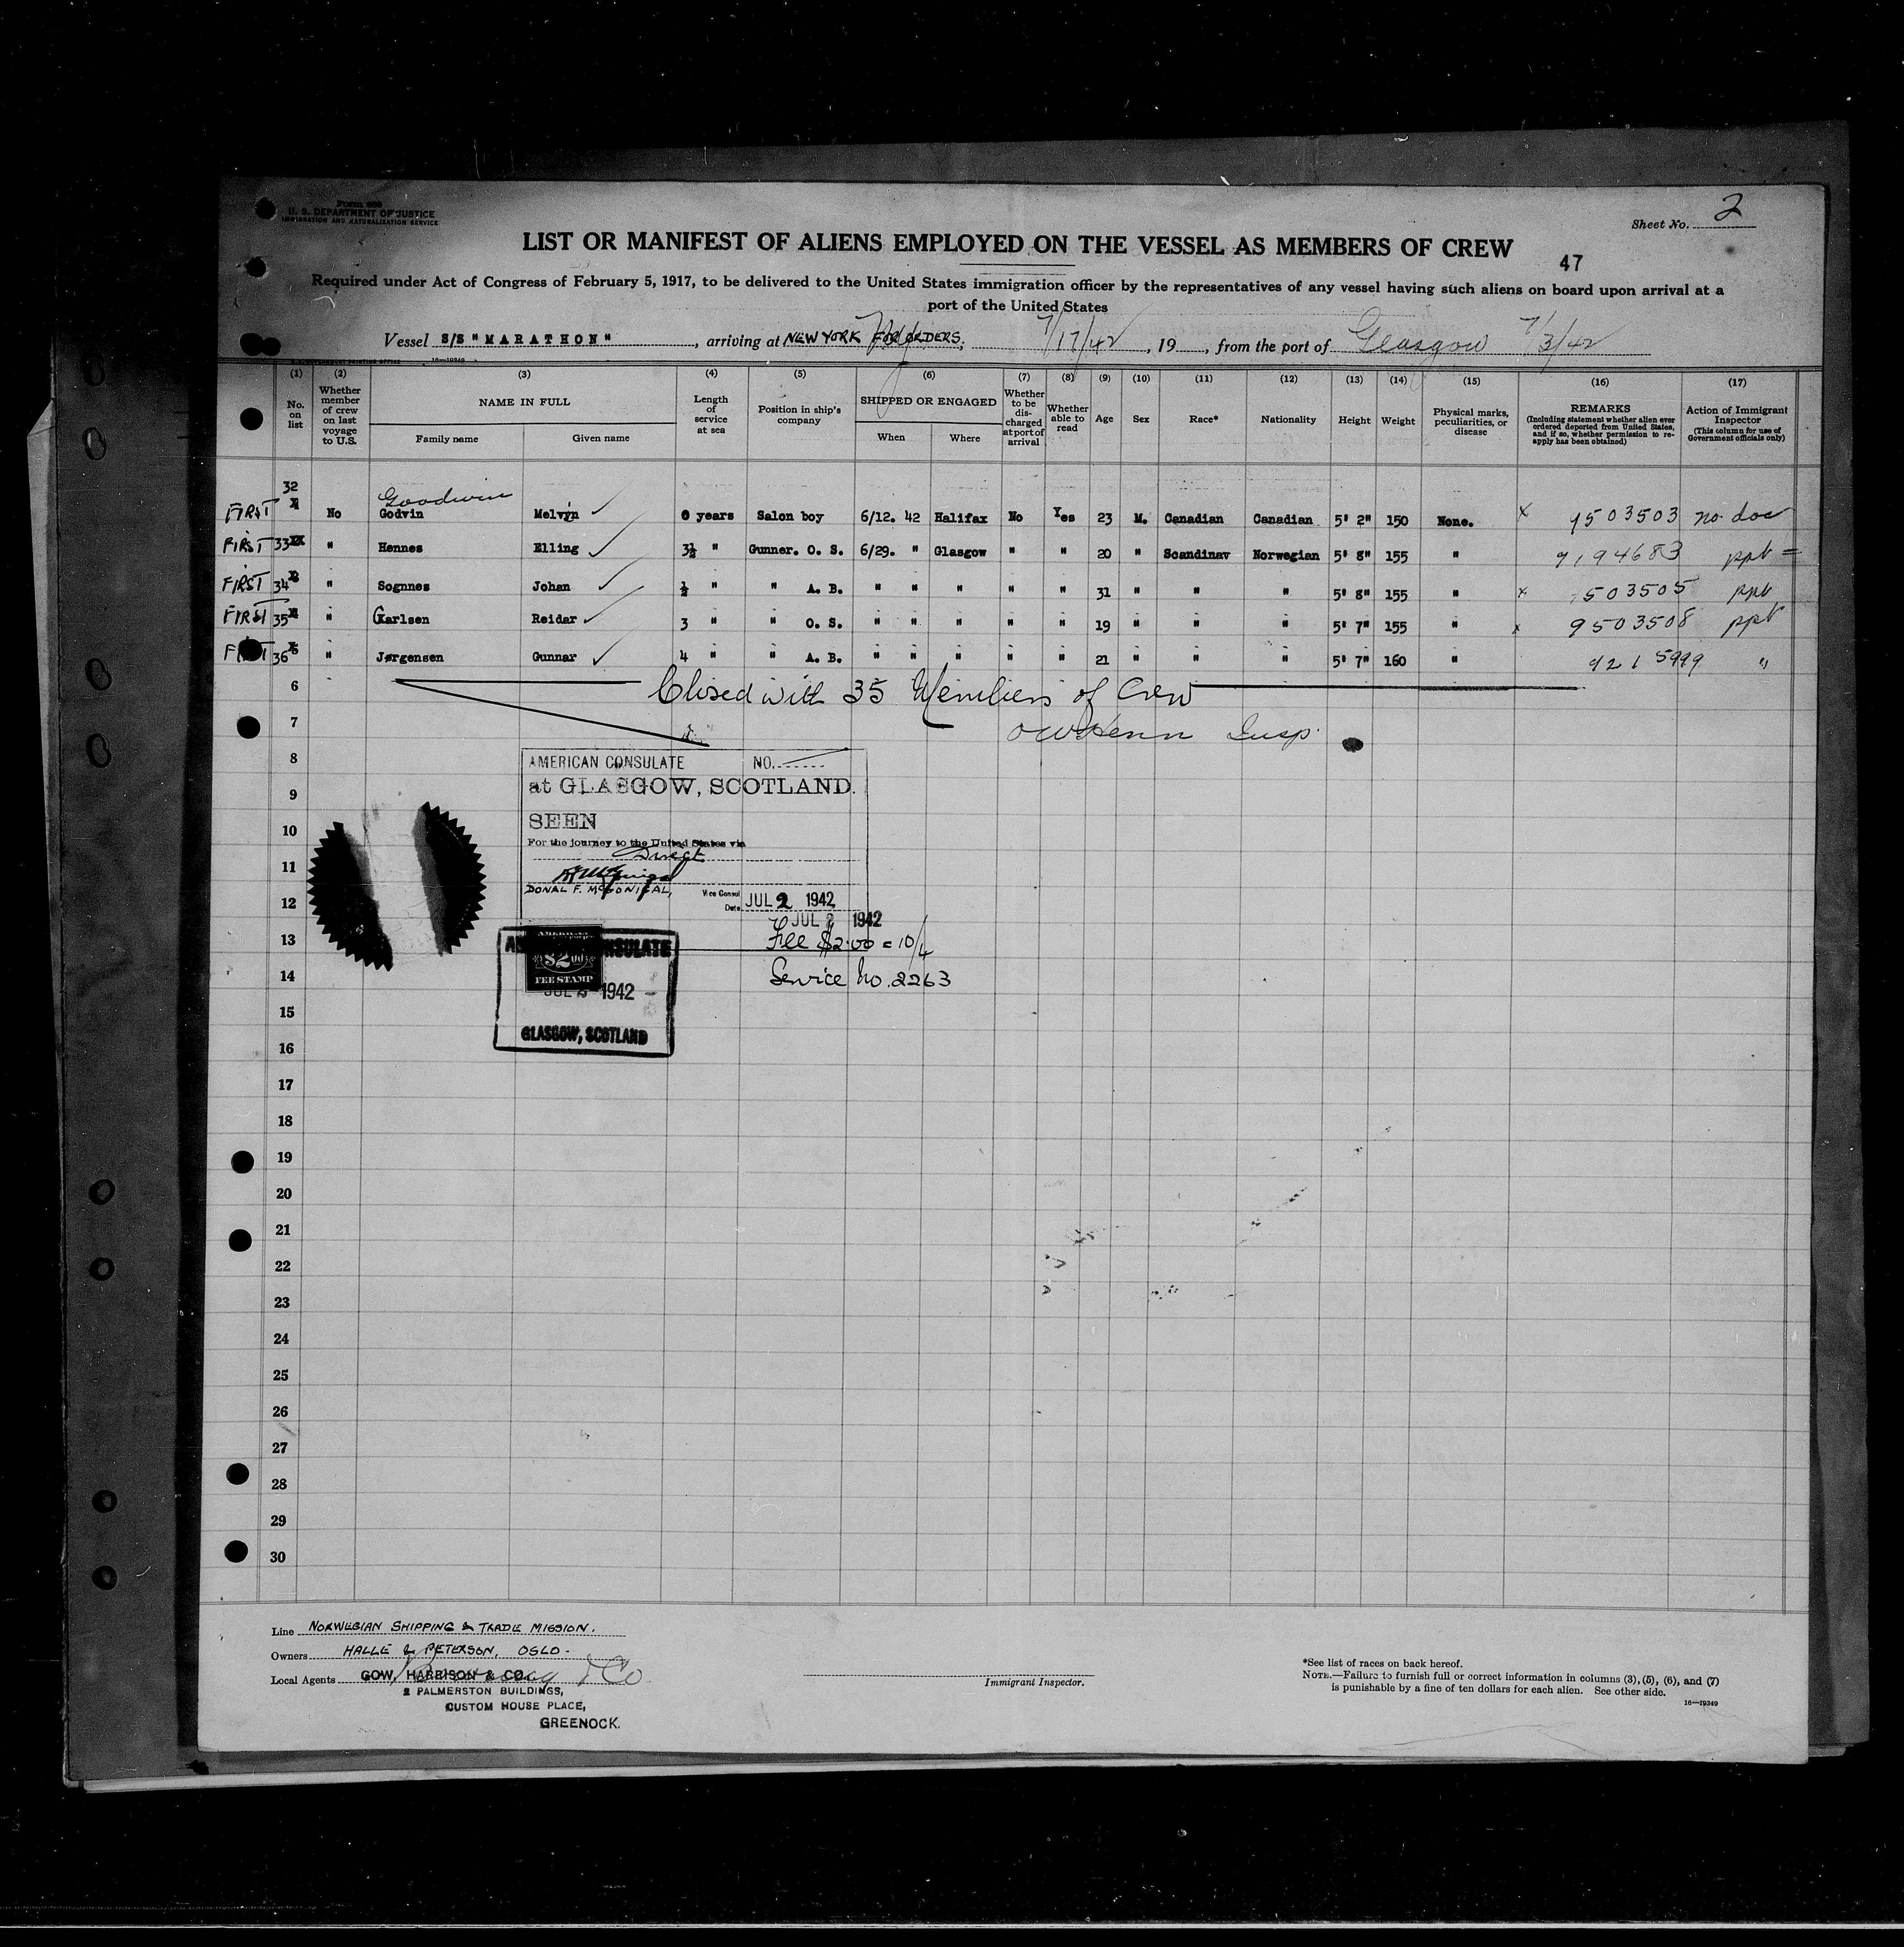 Form 680
U. S. DEPARTMENT OF JUSTICE
IMMIGRATION AND NATURALIZATION SERVICE
Sheet No. 2
LIST OR MANIFEST OF ALIENS EMPLOYED ON THE VESSEL AS MEMBERS OF CREW
47
Required under Act of Congress of February 5, 1917, to be delivered to the United States immigration officer by the representatives of any vessel having such aliens on board upon arrival at a
port of the United States
Vessel S/S "MARATHON", arriving at NEW YORK FOR ORDERS, 7/17/42, 19, from the port of Glasgow 7/3/42
16—19349
(1) (2) (3) (4) (5) (6) (7) (8) (9) (10) (11) (12) (13) (14) (15) (16) (17)
No. on list
Whether member of crew on last voyage to U.S.
NAME IN FULL
Family name
Given name
Length of service at sea
Position in ship's company
SHIPPED OR ENGAGED
When
Where
Whether to be discharged at port of arrival
Whether able to read
Age
Sex
Race*
Nationality
Height
Weight
Physical marks, peculiarities, or disease
REMARKS
(Including statement whether alien ever ordered deported from United States, and if so, whether permission to reapply has been obtained)
Action of Immigrant Inspector
(This column for use of Government officials only)
Goodwin
FIRST 32 No Godvin Melvyn 0 years Salon boy 6/12. 42 Halifax No Yes 23 M. Canadian Canadian 5' 2" 150 None. x 9503503 no doc
FIRST 33 " Hennes Elling 3½ " Gunner. O. S. 6/29. " Glasgow " " 20 " Scandinav Norwegian 5' 8" 155 " 9194683 ppt =
FIRST 34 " Sognnes Johan ½ " " A. B. " " " " " 31 " " " 5' 8" 155 " x 503505 ppt
FIRST 35 " Karlsen Reidar 3 " " O. S. " " " " " 19 " " " 5' 7" 155 " x 9503508 ppt
FIRST 36 " Jørgensen Gunnar 4 " " A. B. " " " " " 21 " " " 5' 7" 160 " 9215999 "
6 Closed with 35 Members of Crew
7 Insp.
8
AMERICAN CONSULATE NO.
at GLASGOW, SCOTLAND.
9
SEEN
10
For the journey to the United States via
Direct
11
DONAL F. McGONIGAL, Vice Consul
12
Date JUL 2 1942
JUL 2 1942
13
Fee $2.00 = 10/4
AMERICAN CONSULATE
$2.00
FEE STAMP
14
Service No. 2263
JUL 2 1942
15
GLASGOW, SCOTLAND
16
17
18
19
20
21
22
23
24
25
26
27
28
29
30
Line NORWEGIAN SHIPPING & TRADE MISSION.
Owners HALLE & PETERSON, OSLO -
Local Agents GOW, HARRISON & CO. & Co
2 PALMERSTON BUILDINGS,
CUSTOM HOUSE PLACE,
GREENOCK.
Immigrant Inspector.
*See list of races on back hereof.
NOTE.—Failure to furnish full or correct information in columns (3), (5), (6), and (7)
is punishable by a fine of ten dollars for each alien. See other side.
16—19349